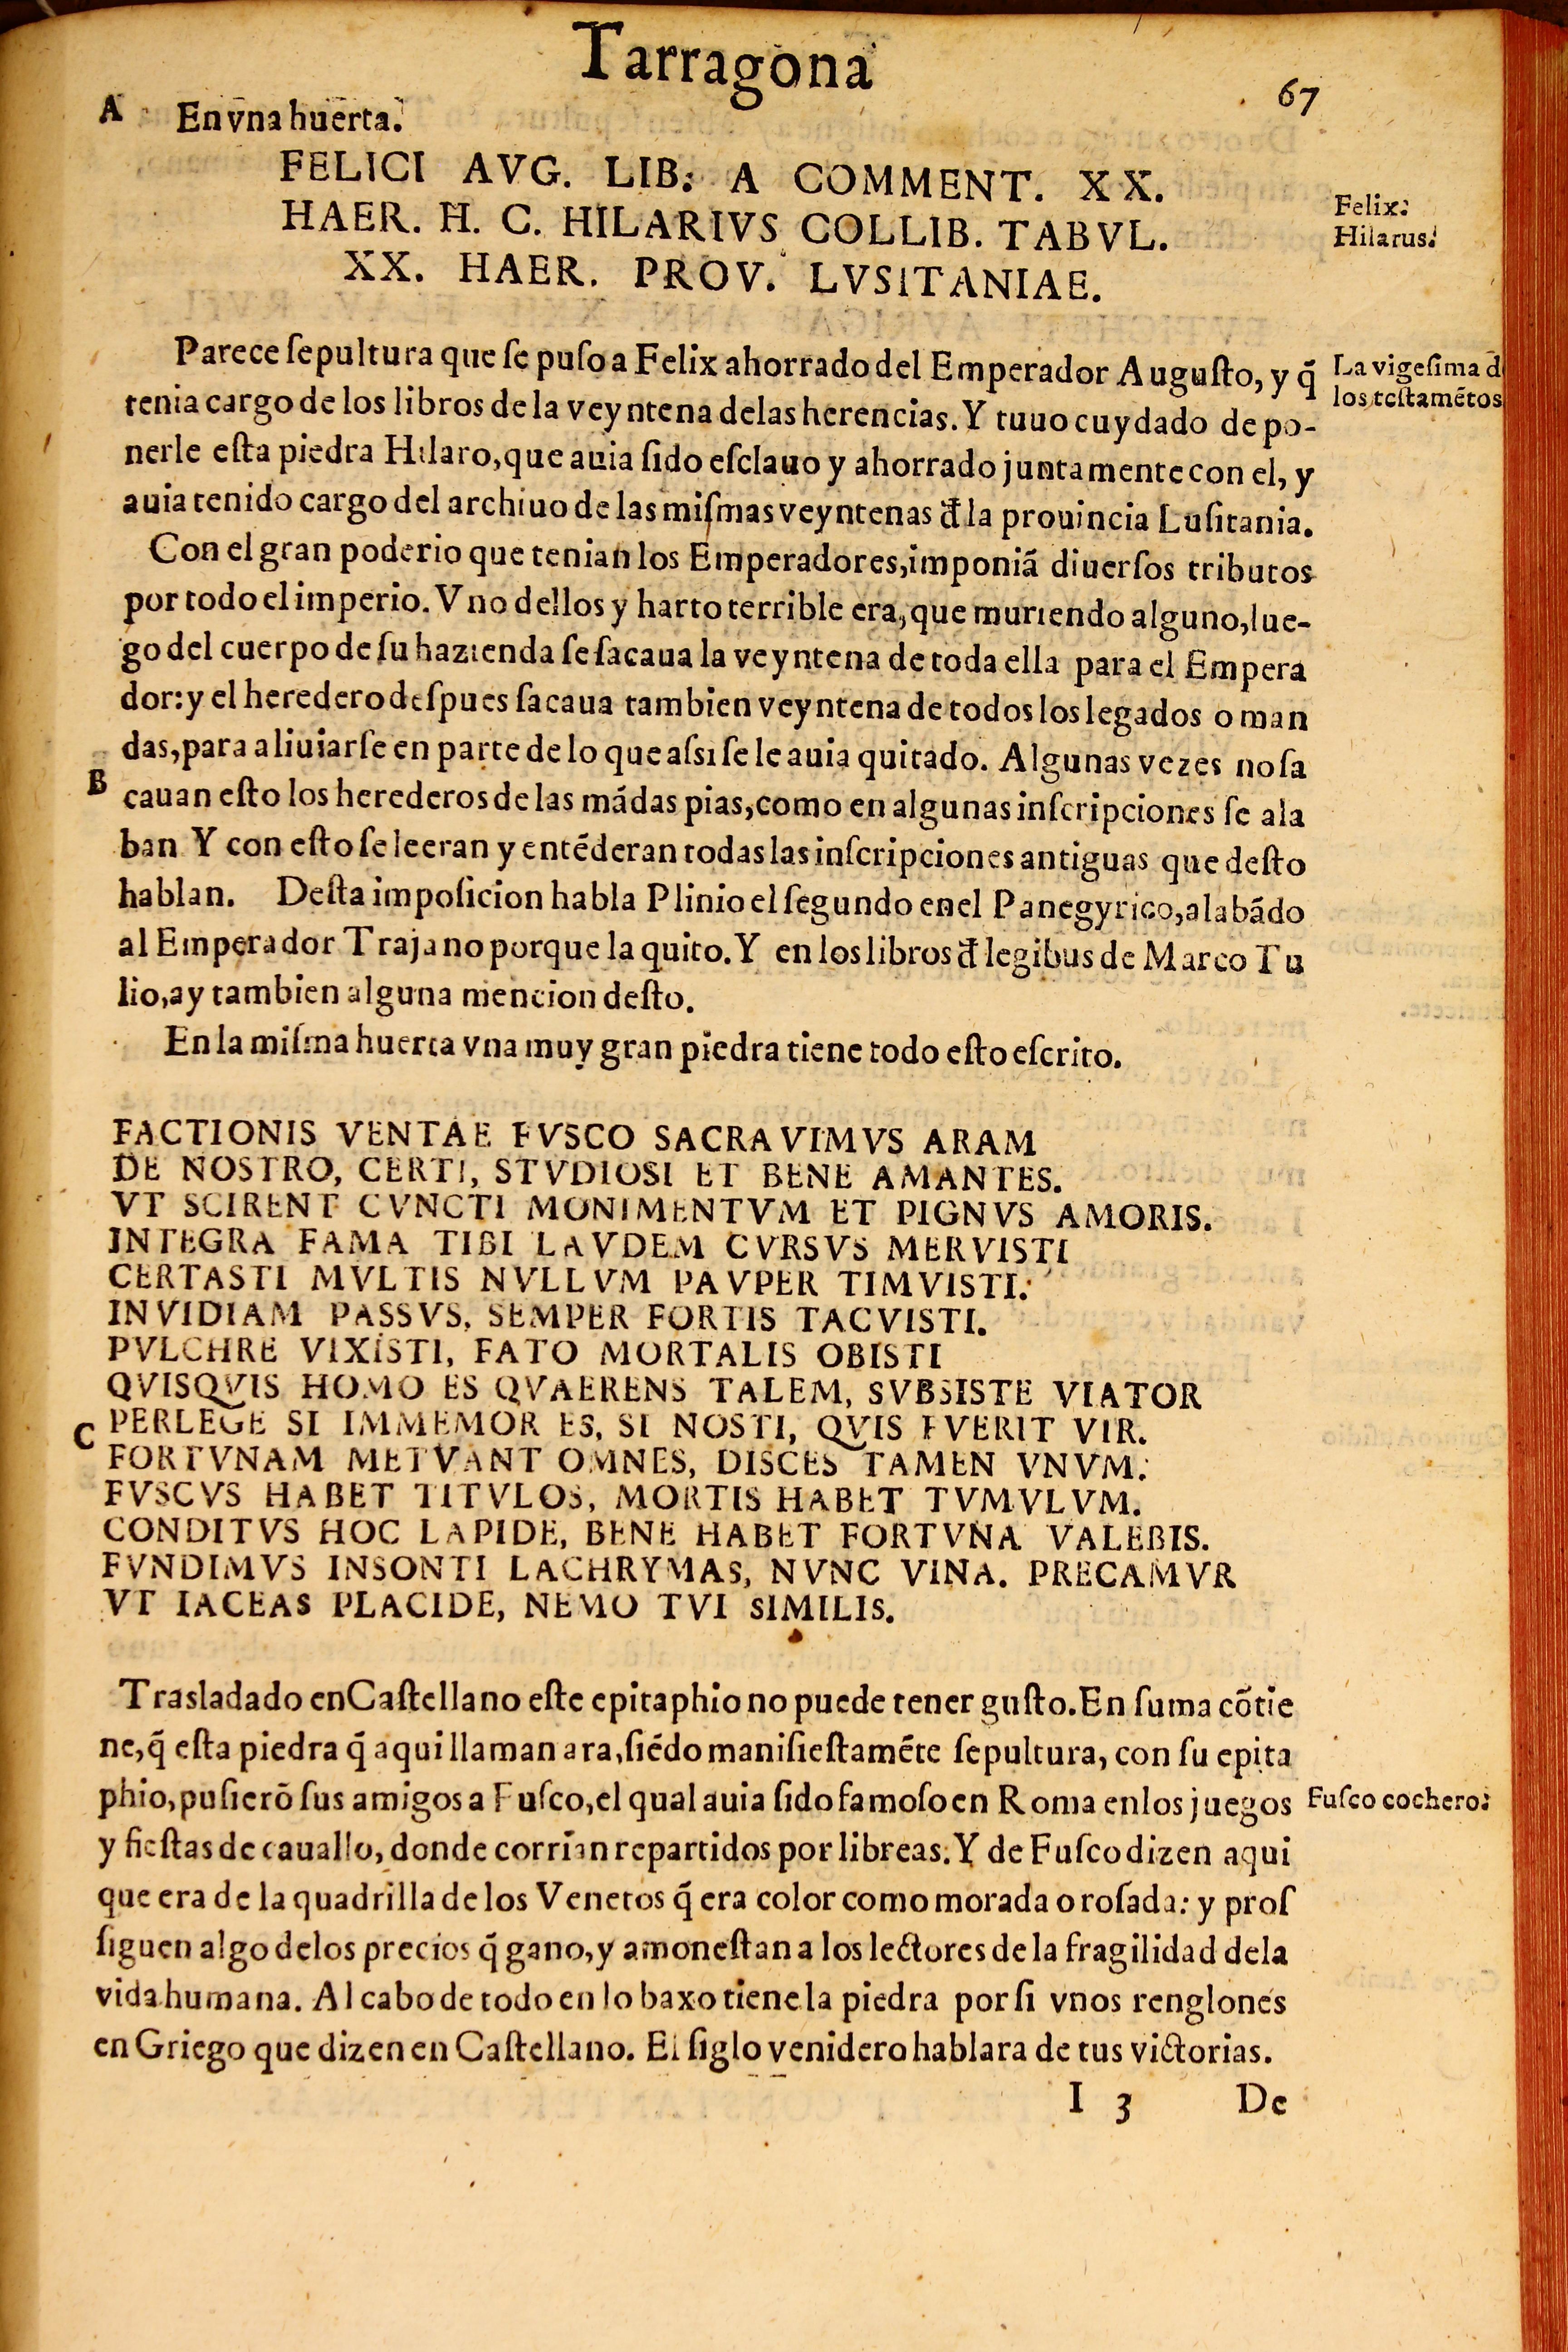 Tarragona
67
A En vna huerta.
FELICI AVG. LIB. A COMMENT. XX.
HAER. H. C. HILARIVS COLLIB. TABVL.
XX. HAER. PROV. LVSITANIAE.
Felix.
Hilarus.
Parece ſepultura que ſe puſo a Felix ahorrado del Emperador Auguſto, y q̃
tenia cargo de los libros de la veyntena delas herencias. Y tuuo cuydado de po-
nerle eſta piedra Hilaro, que auia ſido eſclauo y ahorrado juntamente con el, y
auia tenido cargo del archiuo de las miſmas veyntenas đla prouincia Luſitania.
La vigeſima d
los teſtamẽtos
Con el gran poderio que tenian los Emperadores, imponiã diuerſos tributos
por todo el imperio. Vno dellos y harto terrible era, que muriendo alguno, lue-
go del cuerpo de ſu hazienda ſe ſacaua la veyntena de toda ella para el Empera
dor: y el heredero deſpues ſacaua tambien veyntena de todos los legados o man
das, para aliuiarſe en parte de lo que aſsi ſe le auia quitado. Algunas vezes no ſa
B cauan eſto los herederos de las mãdas pias, como en algunas inſcripciones ſe ala
ban Y con eſto ſe leeran y entẽderan todas las inſcripciones antiguas que deſto
hablan. Deſta impoſicion habla Plinio el ſegundo enel Panegyrico, alabãdo
al Emperador Trajano porque la quito. Y en los libros đ legibus de Marco Tu
lio, ay tambien alguna mencion deſto.
En la miſma huerta vna muy gran piedra tiene todo eſto eſcrito.
FACTIONIS VENTAE FVSCO SACRAVIMVS ARAM
DE NOSTRO, CERTI, STVDIOSI ET BENE AMANTES.
VT SCIRENT CVNCTI MONIMENTVM ET PIGNVS AMORIS.
INTEGRA FAMA TIBI LAVDEM CVRSVS MERVISTI
CERTASTI MVLTIS NVLLVM PAVPER TIMVISTI.
INVIDIAM PASSVS, SEMPER FORTIS TACVISTI.
PVLCHRE VIXISTI, FATO MORTALIS OBISTI
QVISQVIS HOMO ES QVAERENS TALEM, SVBSISTE VIATOR
C PERLEGE SI IMMEMOR ES, SI NOSTI, QVIS FVERIT VIR.
FORTVNAM METVANT OMNES, DISCES TAMEN VNVM.
FVSCVS HABET TITVLOS, MORTIS HABET TVMVLVM.
CONDITVS HOC LAPIDE, BENE HABET FORTVNA VALEBIS.
FVNDIMVS INSONTI LACHRYMAS, NVNC VINA. PRECAMVR
VT IACEAS PLACIDE, NEMO TVI SIMILIS.
Trasladado en Caſtellano eſte epitaphio no puede tener guſto. En ſuma cõtie
ne, q̃ eſta piedra q̃ aqui llaman ara, ſiẽdo manifieſtamẽte ſepultura, con ſu epita
phio, puſierõ ſus amigos a Fuſco, el qual auia ſido famoſo en Roma enlos juegos
Fuſco cochero.
y fieſtas de cauallo, donde corrian repartidos por libreas. Y de Fuſco dizen aqui
que era de la quadrilla de los Venetos q̃ era color como morada o roſada: y proſ
ſiguen algo delos precios q̃ gano, y amoneſtan a los lectores de la fragilidad dela
vida humana. Al cabo de todo en lo baxo tiene la piedra por ſi vnos renglones
en Griego que dizen en Caſtellano. El ſiglo venidero hablara de tus victorias.
I 3 De